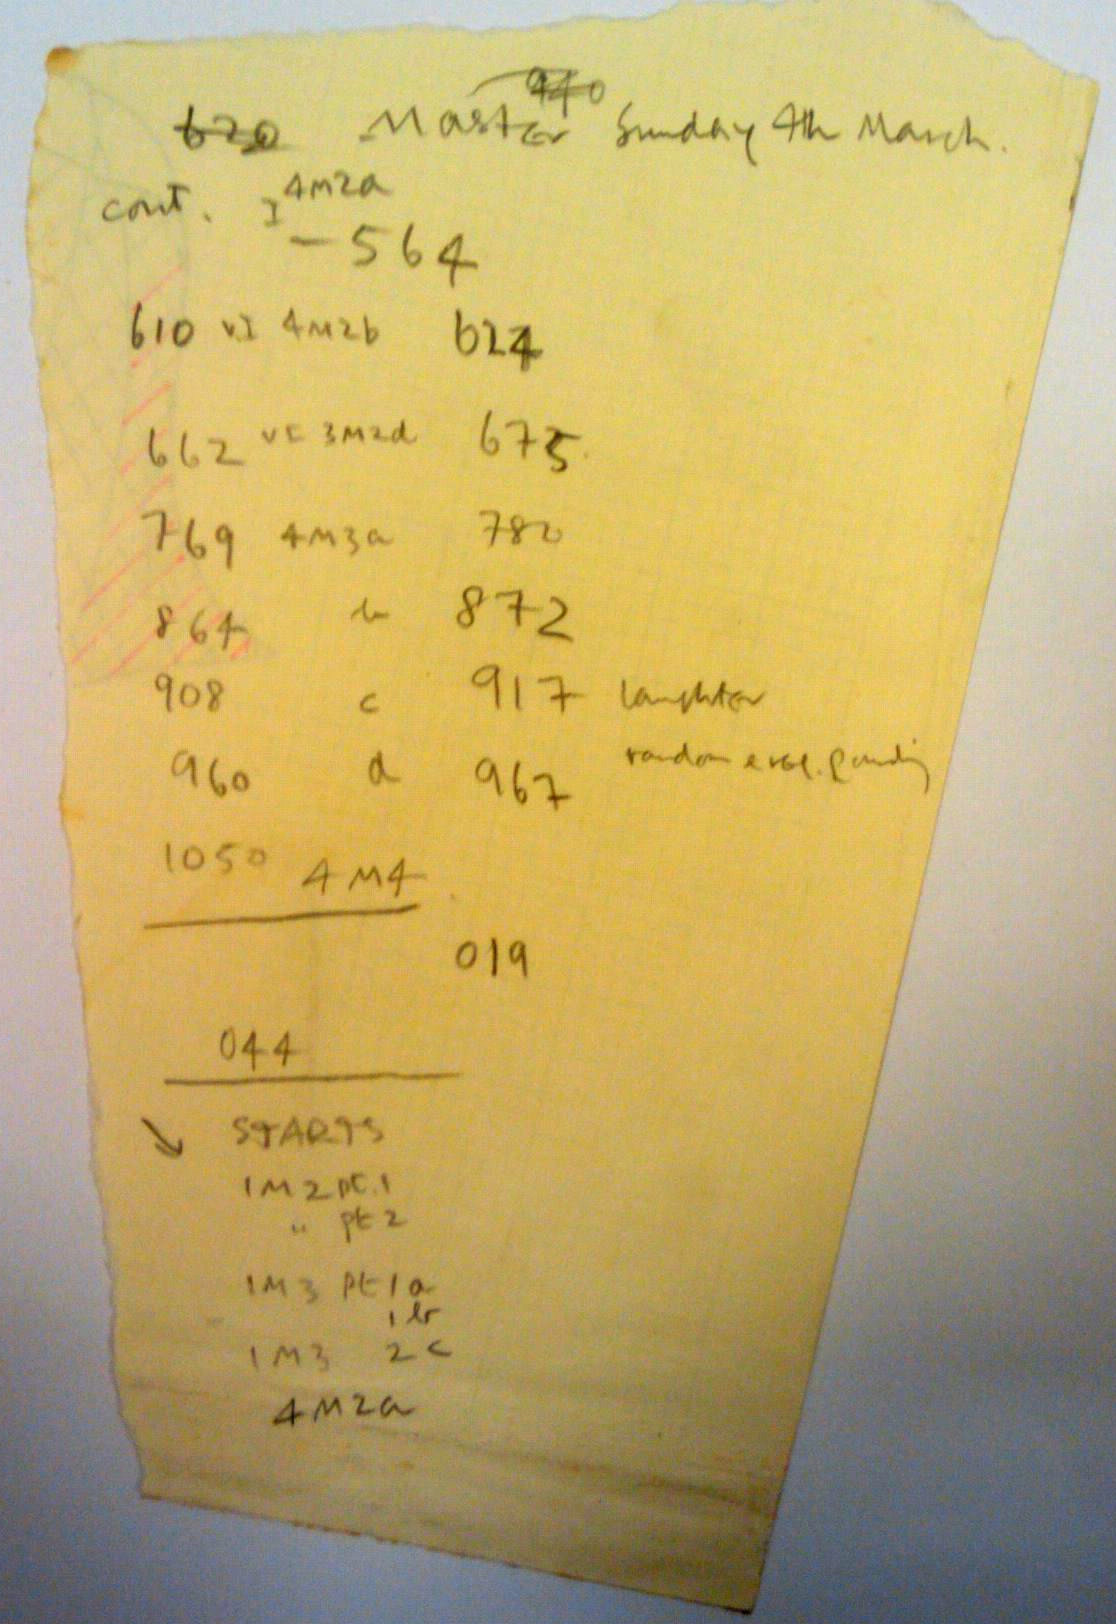 940
620 Master Sunday 4th March.
cont. I 4M2a
- 564
610 VI 4M2b 624
662 VI 3M2d 675
769 4M3a 782
864 b 872
908 c 917 laughter
960 d 967 random
1050 4M4
019
044
STARTS
1M2 pt.1
" pt 2
1M3 pt 1a
1b
1M3 2c
4M2a